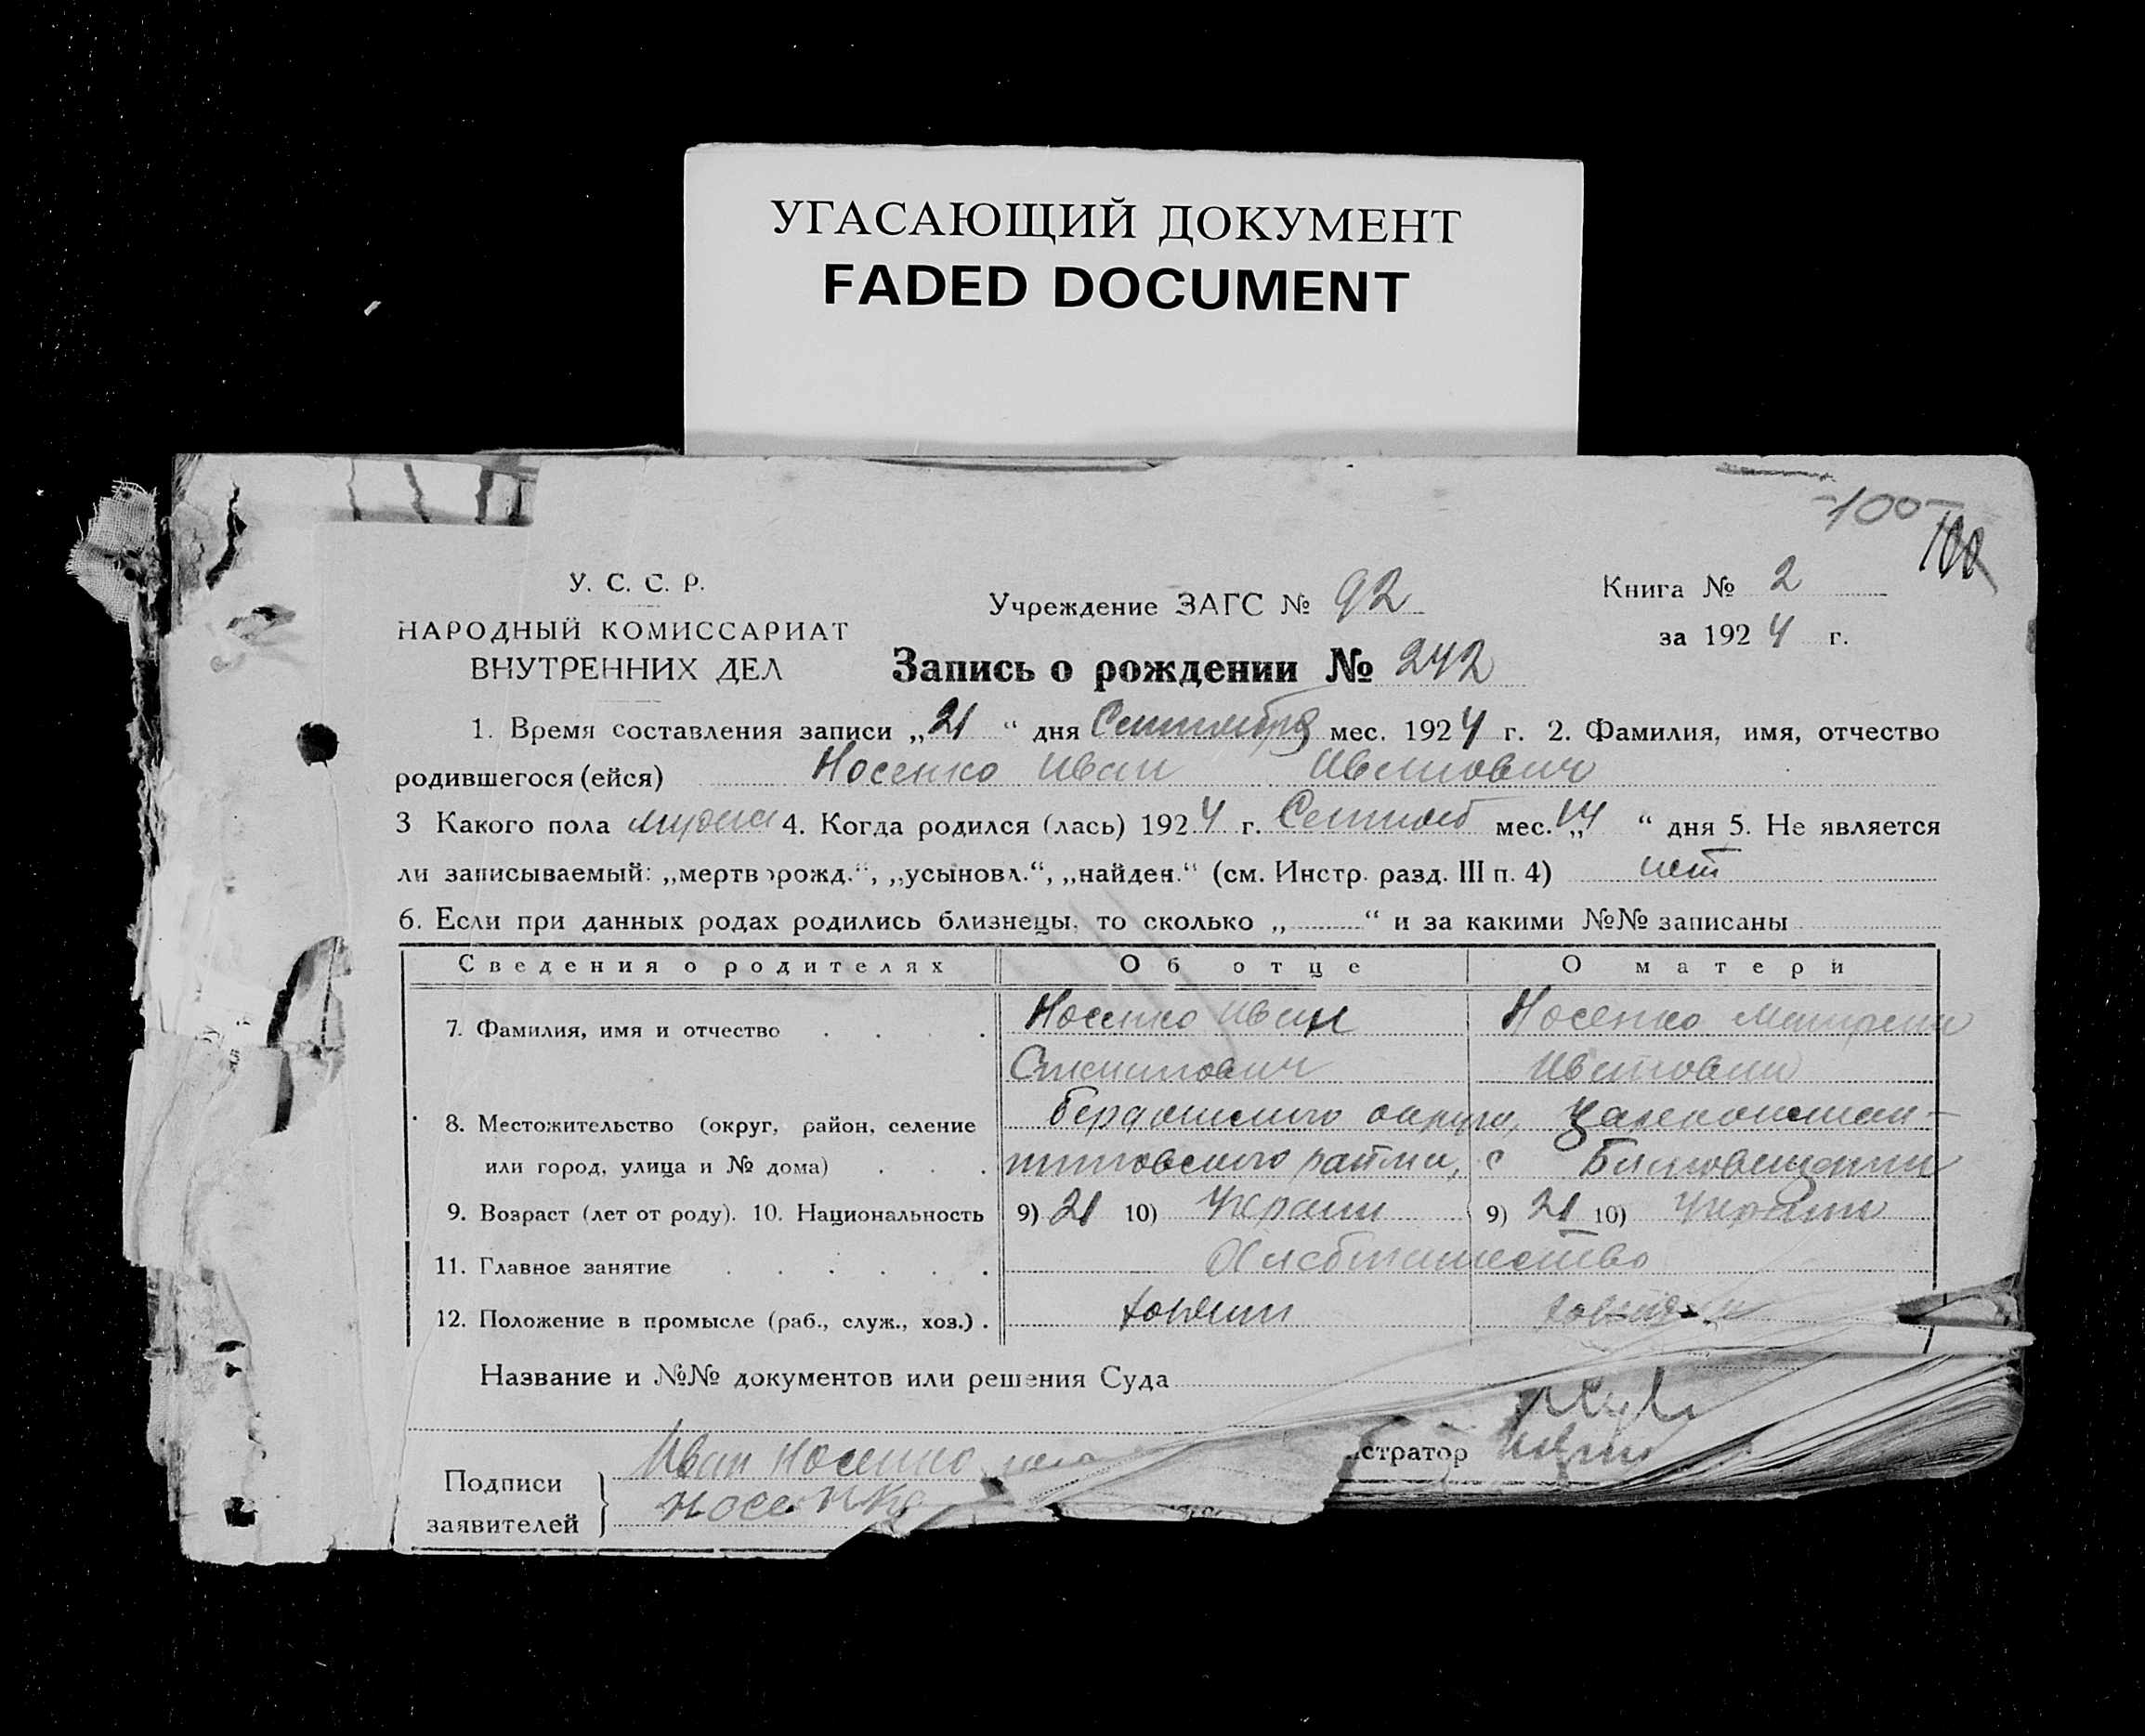 УГАСАЮЩИЙ ДОКУМЕНТ
FADED DOCUMENT
-100-
100
У. С. С. Р.
НАРОДНЫЙ КОМИССАРИАТ
ВНУТРЕННИХ ДЕЛ
Учреждение ЗАГС № 92
Книга № 2
за 1924 г.
Запись о рождении № 242
1. Время составления записи „21“ дня Сентября мес. 1924 г. 2. Фамилия, имя, отчество
родившегося (ейся) Носенко Иван Иванович
3 Какого пола мужск 4. Когда родился (лась) 1924 г. Сентяб мес. „14“ дня 5. Не является
ли записываемый: „мертворожд.“, „усыновл.“, „найден.“ (см. Инстр. разд. III п. 4) нет
6. Если при данных родах родились близнецы, то сколько „ “ и за какими №№ записаны
Сведения о родителях Об отце О матери
7. Фамилия, имя и отчество Носенко Иван Носенко Матрена
Ивановна
8. Местожительство (округ, район, селение Бердянского округа, Цареконстан-
или город, улица и № дома) тиновского района, с
9. Возраст (лет от роду). 10. Национальность 9) 21 10) Украин 9) 21 10) Украин
11. Главное занятие Хлебопашество
12. Положение в промысле (раб., служ., хоз.) хозяин
Название и №№ документов или решения Суда
Подписи заявителей Иван Носенко
Носенко
истратор